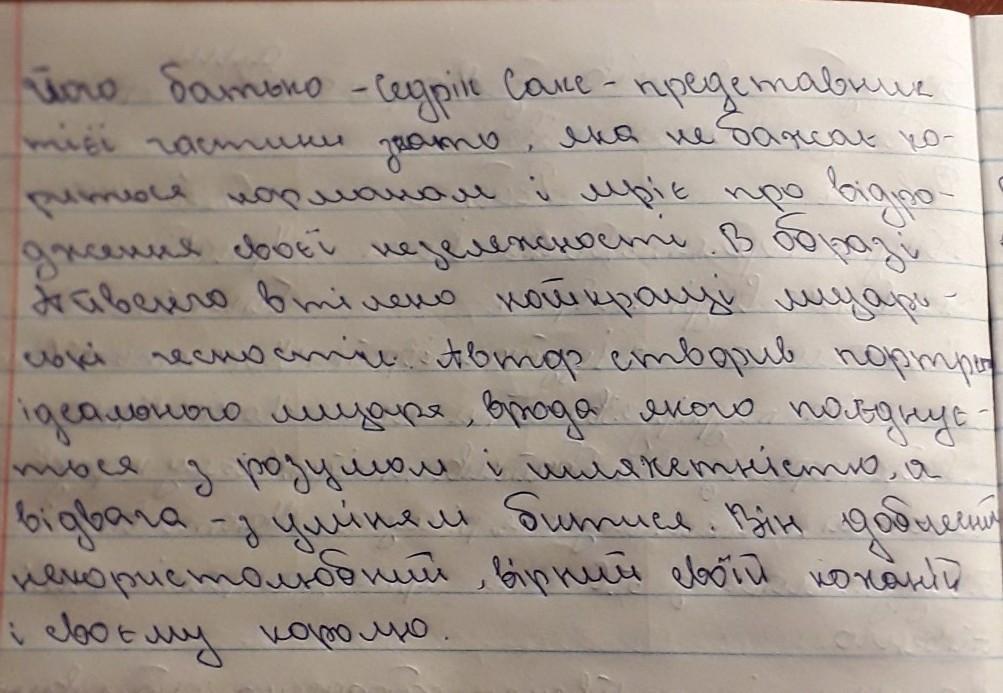 його батько - Седрік Сакс - представник
тієї частини знаті, яка не бажає ко-
ритися норманам і мріє про відро-
дження своєї незалежності. В образі
Айвенго втілено найкращі лицарс-
ькі чесноти. Автор створив портрет
ідеального лицаря, врода якого поєднує-
ться з розумом і шляхетністю, а
відвага - з умінням битися. Він здоблений
некористолюбний, вірний своїй коханій
і своєму королю.